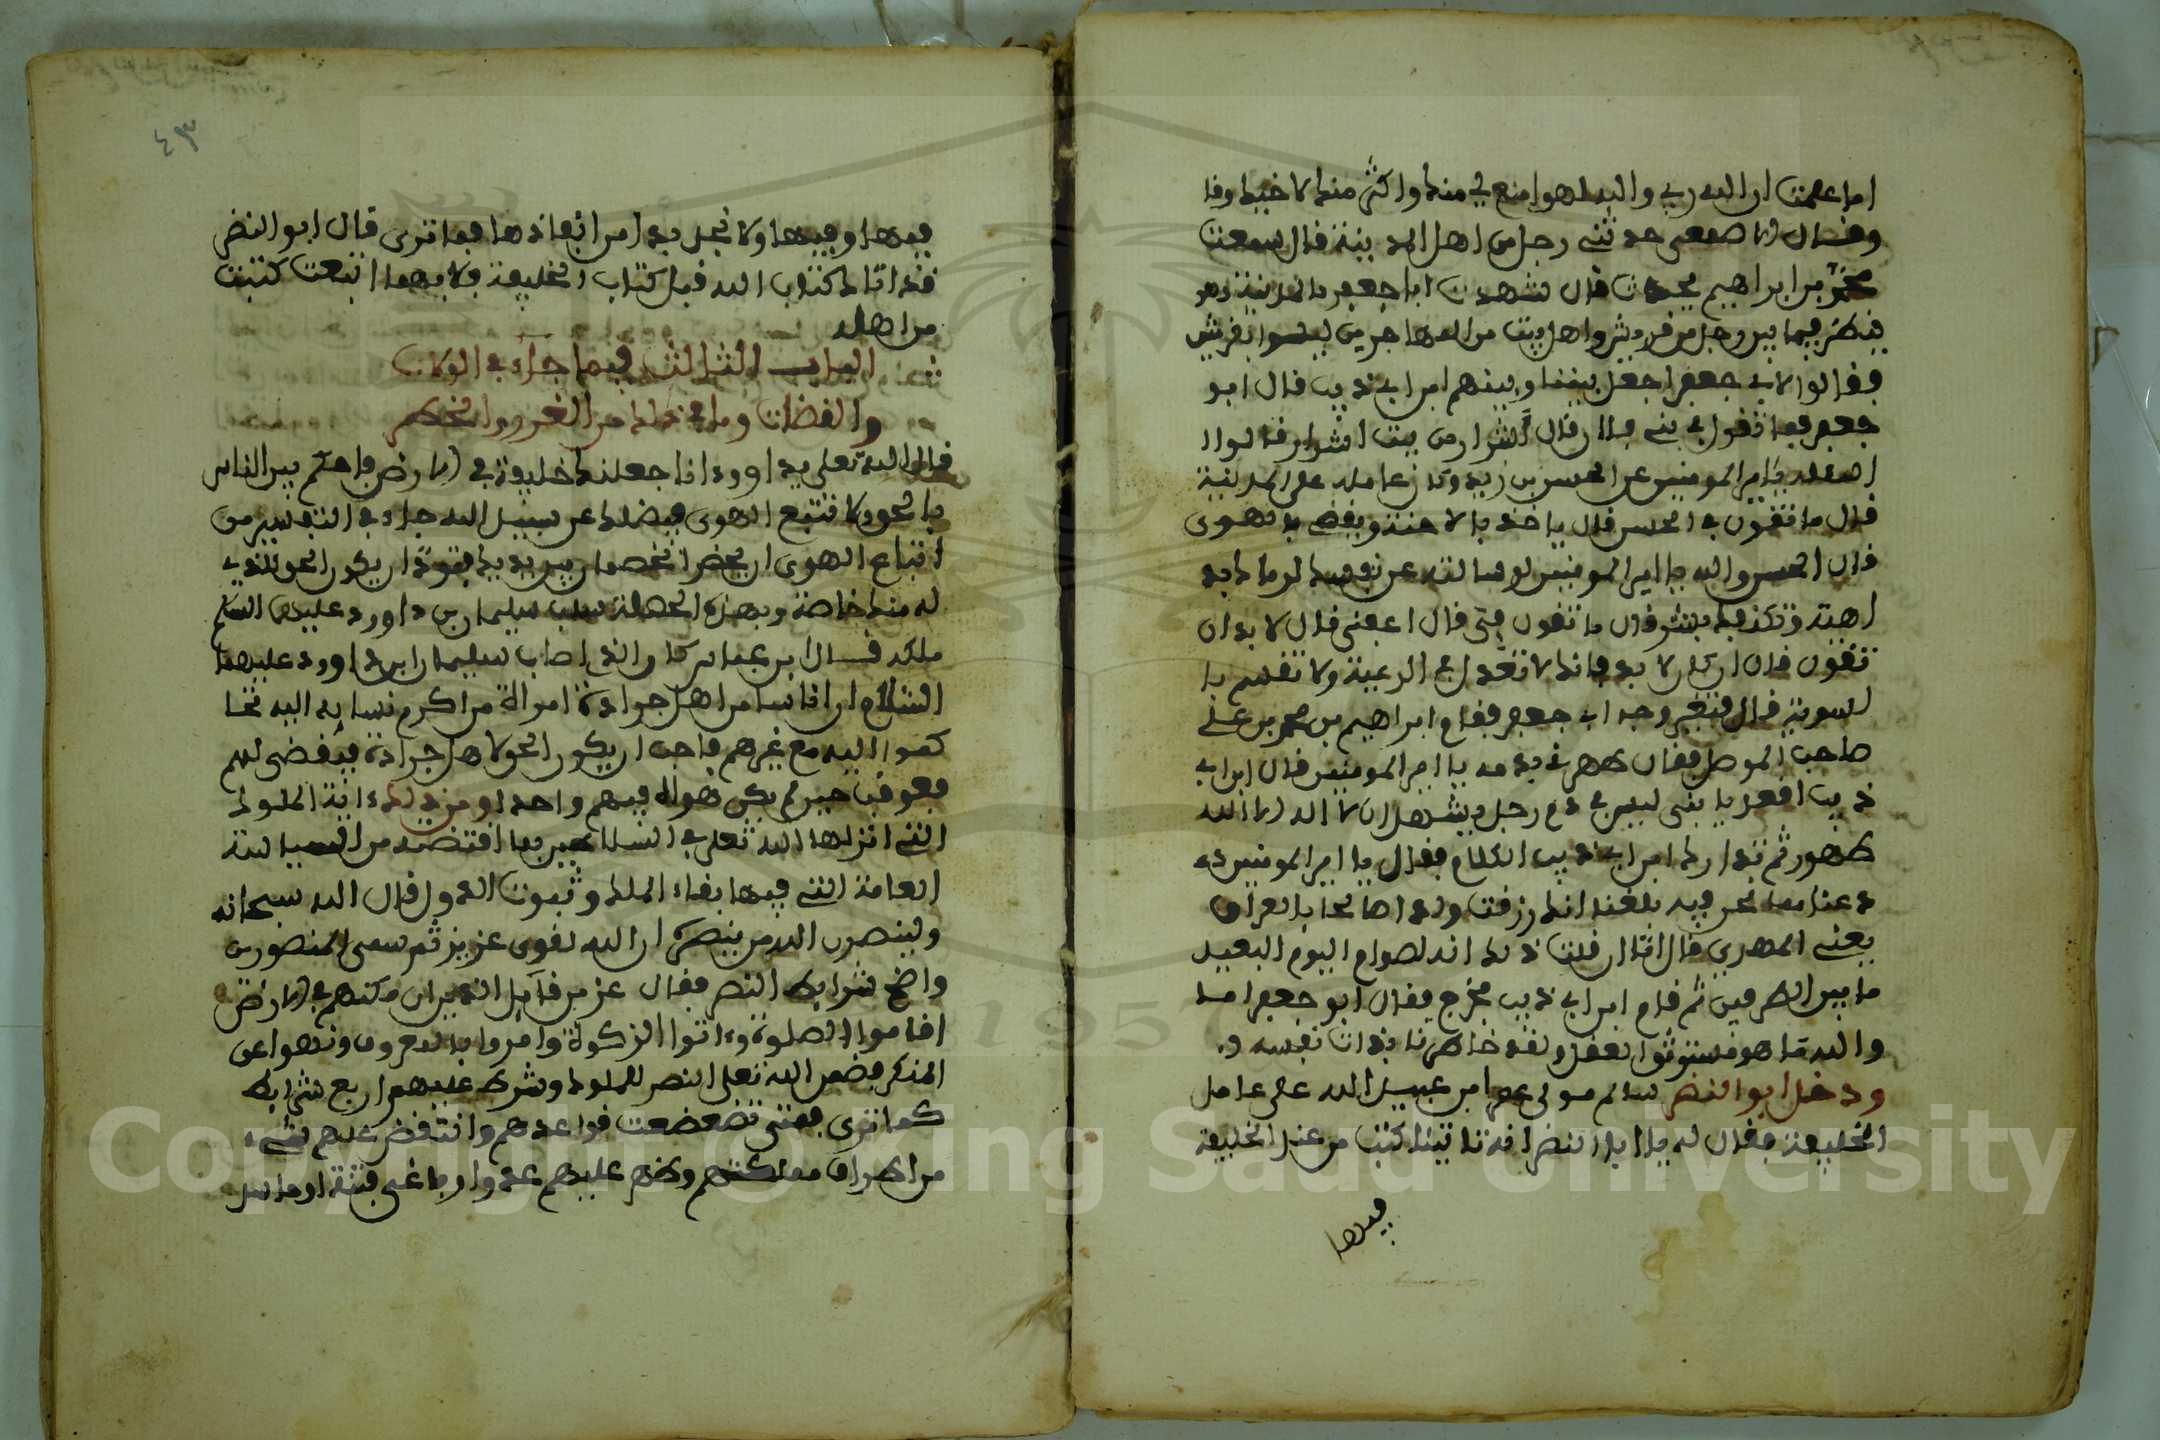 اما علمت ان الله ربي والله لهو امنع لي منك واكثر منك لا خبيط وفا
وقال الاصمعي حدثني رجل من اهل المدينة قال سمعت
محمد بن ابراهيم يحدث قال شهدت ابا جعفر بالمدينة وهو
ينظر فيما بين رجل من قريش واهل بيت من المهاجرين ليسوا بقريش
فقالوا لابي جعفر اجعل بيننا وبينهم ابن ابي ذيب قال ابو
جعفر فما تقول في بني فلان قال اشرار من بيت اشرار قالوا
اسئله يا امير المومنين عن الحسن بن زيد وكان عامله على المدينة
قال ما تقول في الحسن قال ياخذ بالاحنة ويقضي بالهوى
فقال الحسن والله يا امير المومنين لو سالته عن نفسك لرماك به
اهية وتكنفك بشر قال ما تقول في قال اعفني قال لا بد ان
تقول قال ان كان لا بد فانك لا تعدل في الرعية ولا تقسم با
لسوية قال فتغير وجه ابي جعفر فقام ابراهيم بن محمد بن علي
صاحب الموصل فقال طهرني بدمه يا امير المومنين قال ابن ابي
ذيب اقعد يا بني ليس في دم رجل يشهد ان لا اله الا الله
طهور ثم تدارك ابن ابي ذيب الكلام فقال يا امير المومنين د
دعنا مما نحن فيه بلغنا انك رزقت ولدا صالحا بالعراق
يعني المهدي قال اما ان قلت ذلك انه لصوام اليوم البعيد
ما بين الطرفين ثم قام ابن ابي ذيب فخرج فقال ابو جعفر اما
والله ما هو مستوثق العقل ولقد خاطرنا بذات نفسه و.
ودخل ابو النضر سالم مولى عمر بن عبيد الله على عامل
الخليفة فقال له يا ابا النضر انه تاتينا كتب من عند الخليفة
فيها
٤٣
فيها وفيها ولا نجد بدا من انفاذها فما ترى قال ابو النضر
قد اتاك كتاب الله قبل كتاب الخليفة فلايهما اتبعت كنت
من اهله
الباب الثالث فيما جاء في الولات
والقضات وما في ذلك من الغرور والخطر
قال الله تعلى يداوود انا جعلنك خليفة في الارض فاحكم بين الناس
بالحق ولا تتبع الهوى فيضلك عن سبيل الله جاء في التفسير من
اتباع الهوى ان يحضر الخصمان بين يديك فتود ان يكون الحق للذي
له منك خاصة وبهذه الخصلة سلب سليمان بن داوود عليه السلم
ملكه قال ابن عباس كان الذي اصاب سليمان ابن داوود عليهما
السلام ان اناسا من اهل جرادة امراة من اكرم نسايه اليه تحا
كموا اليه مع غيرهم فاحب ان يكون الحق لاهل جرادة فيقضي لهم
فعوقب حين لم يكن هواه فيهم واحدا ومن ذلك ءاية الملوك
التي انزلها الله تعلى في السلاطين بما اقتضته من السياسة
العامة التي فيها بقاء الملك وثبوت الدول قال الله سبحانه
ولينصرن الله من ينصره ان الله لقوي عزيز ثم سمى المنصورين
واضح شرايط النصر فقال عز من قآيل الذين ان مكنهم في الارض
اقاموا الصلوة وءاتوا الزكوة وامروا بالمعروف ونهوا عن
المنكر فضمن الله تعلى النصر للملوك وشرط عليهم اربع شرايط
كما ترى فمتى تضعضعت قواعدهم وانتقض عليهم شيء
من اطراف مملكتهم وظهر عليهم عدو او باغي فتنة او حاسد